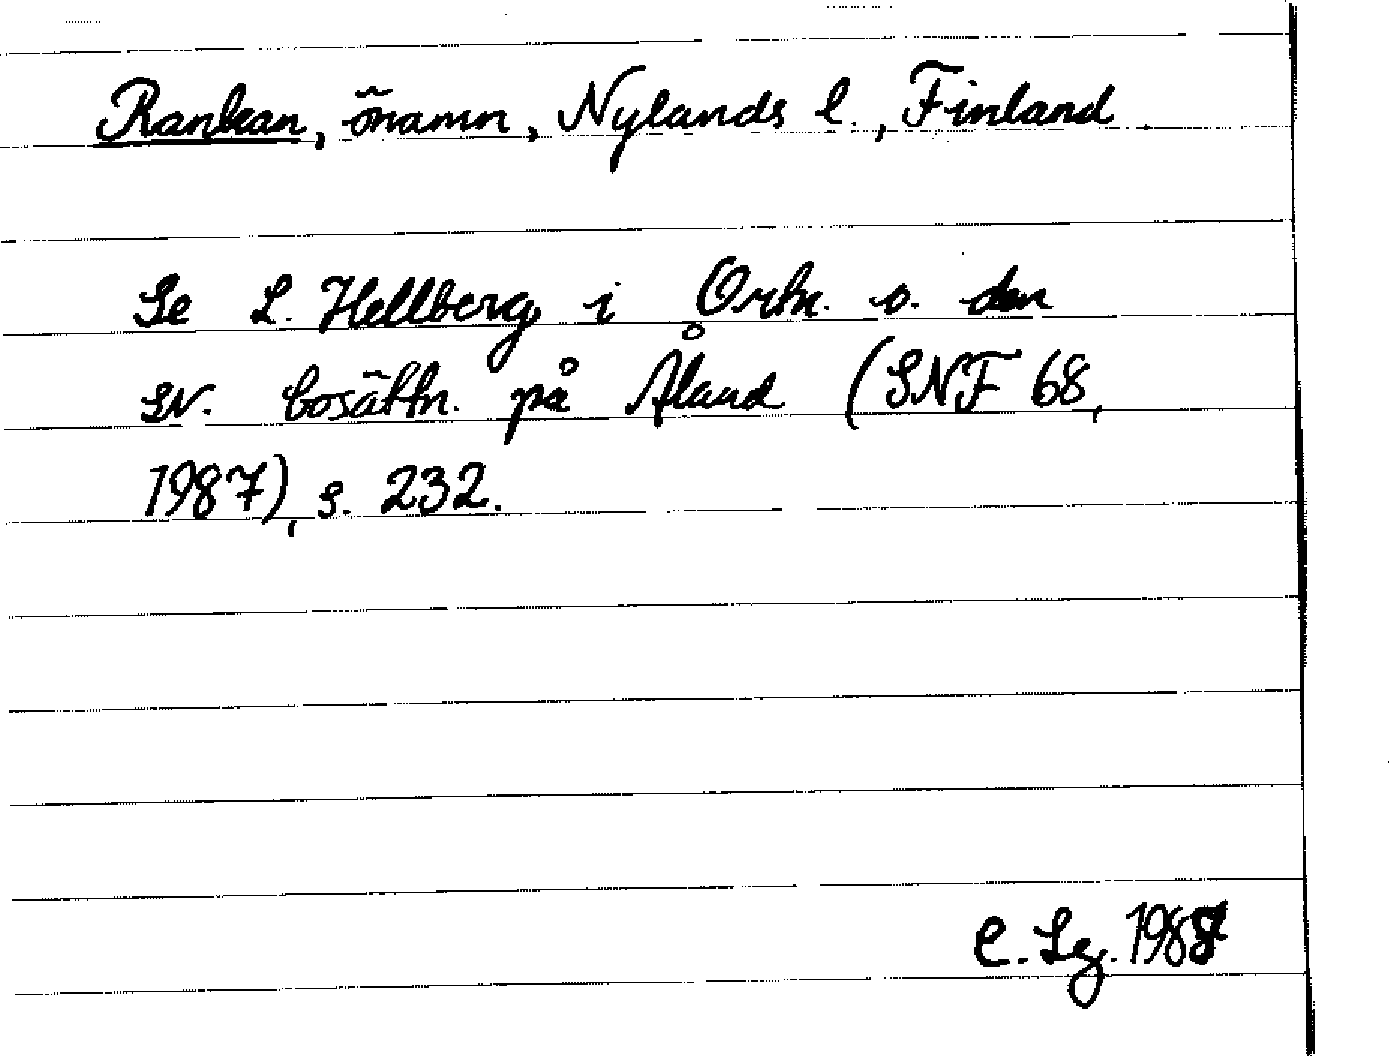 Rankan, önamn, Nylands l., Finland
Se L. Hellberg i Ortn. o. den
sv. bosättn. på Åland (SNF 68,
1987), s. 232.
E. Lg. 1988